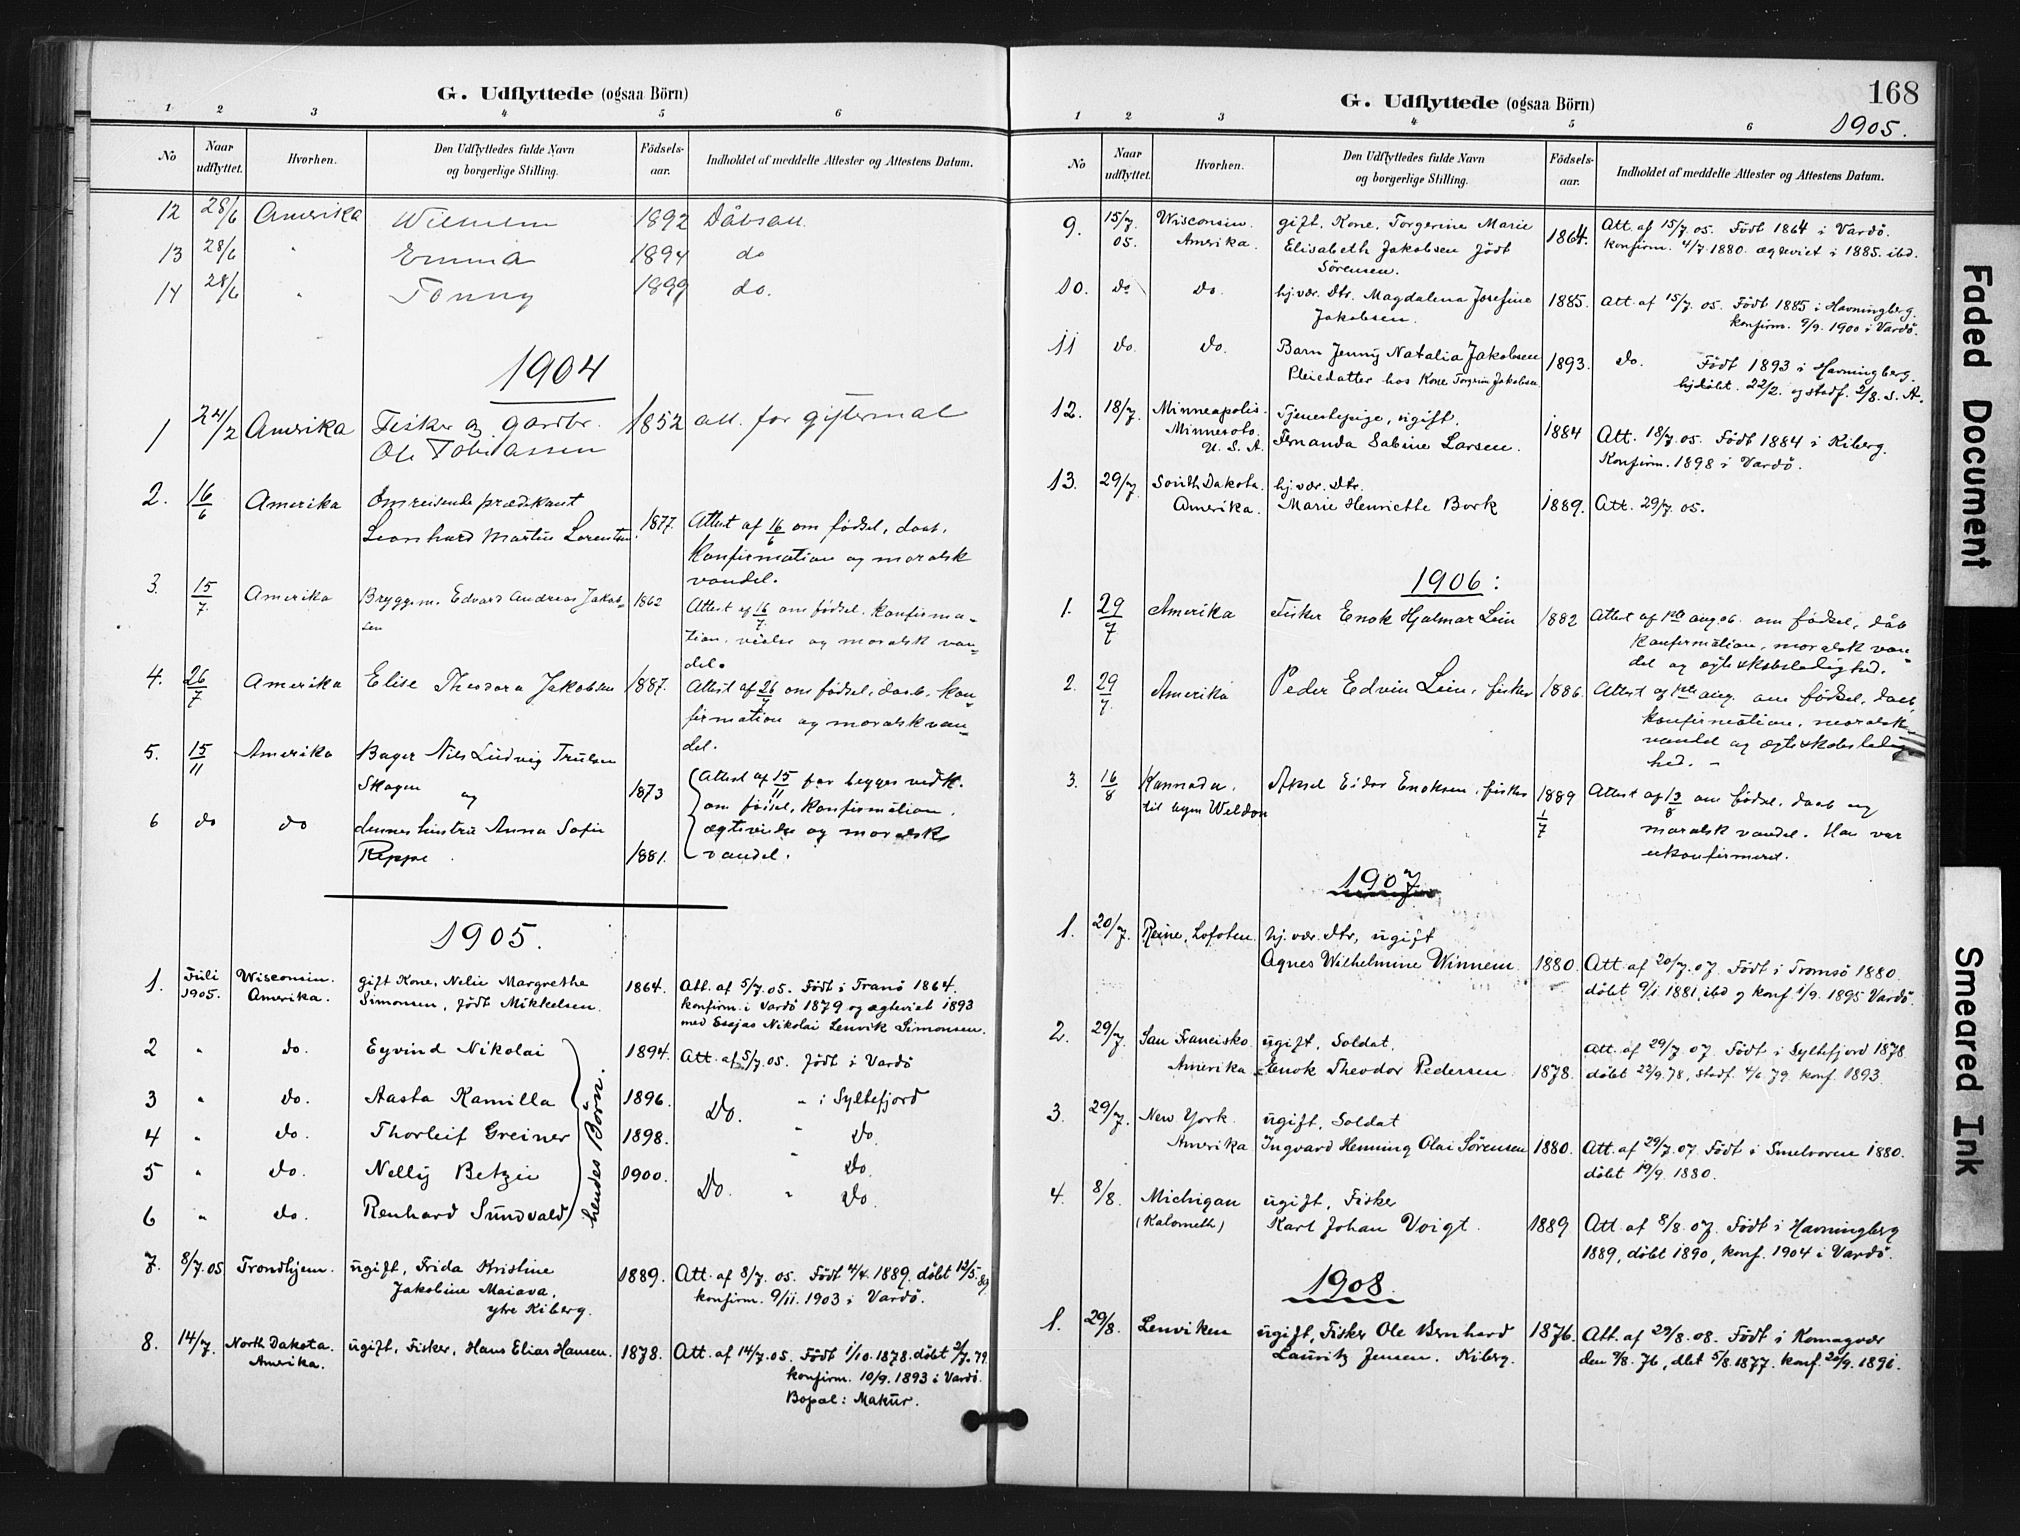 G. Udflyttede (ogsaa Börn)
1 2 3 4 5 6
No Naar udflyttet. Hvorhen. Den Udflyttedes fulde Navn og borgerlige Stilling. Födsels-aar. Indholdet af meddelte Attester og Attestens Datum.
12 28/6 Amerika 1892 Dåbsatt.
13 28/6 " Emma 1894 do
14 28/6 " Tonny 1899 do.
1904
1 24/2 Amerika Fisker og gardbr. 1852 att. for giftermal
Ole Tobiassen
2. 16/6 Amerika Omreisende prædikant
Leonhard Martin Lorentsen. 1877. Attest af 16/6 om fødsel, daab,
konfirmation og moralsk
vandel.
3. 15/7. Amerika Bryggem. Edvard Andreas Jakob- 1862 Attest af 16/7. om fødsel, konfirma-
sen
tion, vielse og moralsk van-
del.
4. 26/7 Amerika Elise Theodora Jakobsen 1887. Attest af 26/7 om fødsel, daab, kon-
firmation og moralsk van-
del.
5. 15/11 Amerika Bager Nils Ludvig Trulsen
Skogen og 1873 Attest af 15/11 for begges vedk.
om fødsel, konfirmation,
6 do do dennes hustru Anna Sofie ægtevielse og moralsk
Reppe. 1881. vandel.
1905.
1. Juli 1905. Wisconsin. Amerika. gift Kone, Nelie Margrethe 1864. Att. af 5/7. 05. Født i Tranö 1864.
Simonsen, født Mikkelsen. konfirm. i Vardö 1879 og ægteviet 1893
med Esajas Nikolai Lenvik Simonsen.
2 " do. Eyvind Nikolai 1894. Att. af 5/7. 05. født i Vardö
3 " do. Aasta Kamilla 1896. Do. " i Syltefjord
4 " do. Thorleif Greiner 1898. " do.
5 " do. Nelly Betzie 1900. Do. " do.
6 " do. Renhard Sundvald " do
hendes Börn.
7. 8/7. 05 Trondhjem. ugift, Frida Kristine 1889. Att. af 8/7. 05. Født 4/4. 1889. döbt 12/5. 89.
Jakobine Maiava, konfirm. 9/11. 1903 i Vardö.
ytre Kiberg.
8. 14/7. North Dakota. Amerika. ugift, Fisker, Hans Elias Hansen. 1878. Att. af 14/7. 05. Født 1/10. 1878. döbt 2/7. 79.
konfirm. 10/9. 1893 i Vardö.
Bopæl: Makur.
168
G. Udflyttede (ogsaa Börn)
1905.
1 2 3 4 5 6
No Naar udflyttet. Hvorhen. Den Udflyttedes fulde Navn og borgerlige Stilling. Födsels-aar. Indholdet af meddelte Attester og Attestens Datum.
9. 15/7 05. Wisconsin. Amerika. gift, Kone, Torgerine Marie 1864. Att. af 15/7. 05. Født 1864 i Vardö.
Elisabeth Jakobsen født konfirm. 4/7. 1880. ægteviet i 1885. ibd.
Sörensen.
10. do do. hj.vær. Dtr. Magdalena Josefine 1885. Att. af 15/7. 05. Født 1885 i Havningberg.
Jakobsen. konfirm. 9/9. 1900 i Vardö.
11 do. do. Barn Jenny Natalia Jakobsen 1893. do. Født 1893 i Havningberg.
Pleiedatter hos Kone Torgrin Jakobsen hjdöbt. 22/2. og stadf. 2/8. s. A.
12. 18/7. Minneapolis. Tjenestepige, ugift.
Minnesota. U. S. A. Fernanda Sabine Larsen. 1884 Att. 18/7. 05. Født 1884 i Kiberg.
Konfirm. 1898 i Vardö.
13. 29/7. South Dakota. hj.vær. Dtr.
Amerika. Marie Henriette Bork 1889. Att. 29/7. 05.
1906:
1. 29/7 Amerika Fisker Enok Hjalmar Lein 1882 Attest af 1ste aug. 06. om fødsel, dåb
konfirmation, moralsk van-
del og ægteskabsledighed.
2. 29/7. Amerika Peder Edvin Lein, fisker 1886. Attest af 1ste aug. om fødsel, daab,
konfirmation, moralsk
vandel og ægteskabsledig-
hed. -
3. 16/8 Kannada, Aksel Eidor Enoksen, fisker 1889 1/7 Attest af 13/8 om fødsel, daab og
til byen Weldon moralsk vandel. Han var
ukonfirmeret.
1907
1. 20/7. Reine, Lofoten. hj.vær. Dtr, ugift
Agnes Wilhelmine Winnem. 1880. Att. af 20/7. 07. Født i Tromsö 1880.
döbt 9/1. 1881, ibd og konf. 1/9. 1895 Vardö.
2. 29/7. San Francisko. ugift, Soldat. Att. af 29/7. 07. Født i Syltefjord 1878.
Amerika Enok Theodor Pedersen 1878. döbt 22/9. 78, stadf. 4/6. 79. konf. 1893.
3. 29/7. New York. ugift, Soldat
Amerika Ingvard Henning Olai Sörensen 1880. Att. af 29/7. 07. Født i Smelroren 1880.
döbt 19/9. 1880.
4. 8/8. Michigan ugift, Fisker
(Kalometh) Karl Johan Voigt. 1889. Att. af 8/8. 07. Født i Havningberg
1889, döbt 1890, konf. 1904 i Vardö.
1908.
1. 29/8. Lenviken ugift, Fisker Ole Bernhard 1876. Att. af 29/8. 08. Født i Komagvær
Lauritz Jensen. Kiberg. den 9/8. 76, dbt 5/8. 1877. konf. 20/9. 1891.
Faded Document
Smeared Ink